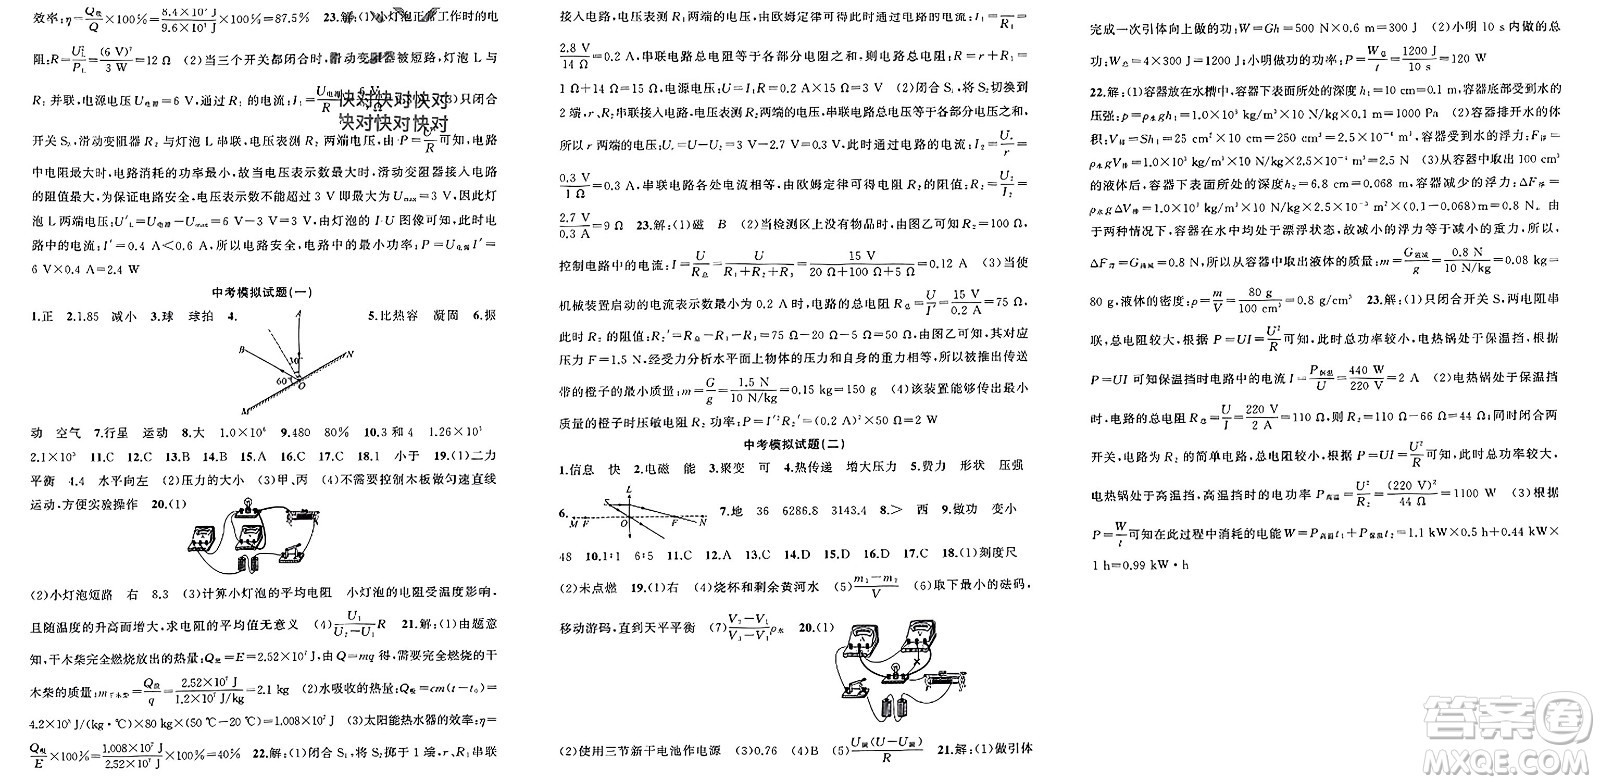 效率:η=Q吸/Q×100%=8.4×10⁷ J/9.6×10⁷ J×100%=87.5% 23.解:(1)小灯泡正常工作时的电
阻:R=U²L/PL=(6 V)²/3 W=12 Ω (2)当三个开关都闭合时,滑动变阻器被短路,灯泡 L 与
R₁ 并联,电源电压 U电源=6 V,通过 R₁ 的电流:I₁=U电源/R (3)只闭合
快对快对快对
快对快对快对
开关 S₂,滑动变阻器 R₂ 与灯泡 L 串联,电压表测 R₂ 两端电压,由 P=U²/R可知,电路
中电阻最大时,电路消耗的功率最小,故当电压表示数最大时,滑动变阻器接入电路
的阻值最大,为保证电路安全,电压表示数不能超过 3 V 即最大为 Umax=3 V,因此灯
泡 L 两端电压:U′L=U电源−Umax=6 V−3 V=3 V,由灯泡的 I-U 图像可知,此时电
路中的电流:I′=0.4 A<0.6 A,所以电路安全,电路中的最小功率:P=U电源I′=
6 V×0.4 A=2.4 W
中考模拟试题(一)
1.正 2.1.85 减小 3.球 球拍 4. 5.比热容 凝固 6.振
A B N 30° 60° O M
动 空气 7.行星 运动 8.大 1.0×10⁶ 9.480 80% 10.3 和 4 1.26×10³
2.1×10³ 11.C 12.C 13.B 14.B 15.A 16.C 17.C 18.1 小于 19.(1)二力
平衡 4.4 水平向左 (2)压力的大小 (3)甲、丙 (4)不需要控制木板做匀速直线
运动,方便实验操作 20.(1)
(2)小灯泡短路 右 8.3 (3)计算小灯泡的平均电阻 小灯泡的电阻受温度影响,
且随温度的升高而增大,求电阻的平均值无意义 (4)U₁/(U₂−U₁)R 21.解:(1)由题意
知,干木柴完全燃烧放出的热量:Q放=E=2.52×10⁷ J,由 Q=mq 得,需要完全燃烧干
木柴的质量:m干木柴=Q放/q=2.52×10⁷ J/1.2×10⁷ J/kg=2.1 kg (2)水吸收的热量:Q吸=cm(t−t₀)=
4.2×10³ J/(kg·℃)×80 kg×(50 ℃−20 ℃)=1.008×10⁷ J (3)太阳能热水器的效率:η=
Q吸/E×100%=1.008×10⁷ J/2.52×10⁷ J×100%=40% 22.解:(1)闭合 S₁,将 S₂ 掷于 1 端,r、R₁ 串联
接入电路,电压表测 R₁ 两端的电压,由欧姆定律可得电路的电流:I₁=U₁/R₁=
2.8 V/14 Ω=0.2 A,串联电路总电阻等于各部分电阻之和,则电路的总电阻:R=r+R₁=
1 Ω+14 Ω=15 Ω,电源电压:U=I₁R=0.2 A×15 Ω=3 V (2)闭合 S₁,将 S₂ 掷于
2 端,r、R₂ 串联接入电路,电压表测 R₂ 两端的电压,因串联电路中总电压等于各部分电压之和,
所以 r 两端的电压:Ur=U−U₂=3 V−2.7 V=0.3 V,此时通过电路的电流:I₂=Ur/r=
0.3 V/1 Ω=0.3 A,串联电路各处电流相等,由欧姆定律可得 R₂ 的阻值:R₂=U₂/I₂=
2.7 V/0.3 A=9 Ω 23.解:(1)磁 B (2)当检测区上没有物品时,由图乙可知 R₂=100 Ω,
控制电路中的电流:I=U/R总=U/(R₁+R₂+R₃)=15 V/(20 Ω+100 Ω+5 Ω)=0.12 A (3)当使
机械装置启动的电流表示数最小为 0.2 A 时,电路的总电阻:R总′=U/I′=15 V/0.2 A=75 Ω,
此时 R₂ 的阻值:R₂′=R总′−R₁−R₃=75 Ω−20 Ω−5 Ω=50 Ω,由图乙可知,其对应
压力 F=1.5 N,经受力分析水平面上物体的压力和自身的重力相等,所以被推出传送
带的橙子的最小质量:m=G/g=1.5 N/10 N/kg=0.15 kg=150 g (4)该装置能够传出最小
质量的橙子时压敏电阻 R₂ 功率:P=I′²R₂′=(0.2 A)²×50 Ω=2 W
中考模拟试题(二)
1.信息 快 2.电磁 能 3.聚变 可 4.热传递 增大压力 5.费力 形状 压强
6. S L M F O F N 7.地 36 6286.8 3143.4 8.> 西 9.做功 变小
48 10.1∶1 6∶5 11.C 12.A 13.C 14.B 15.D 16.C 17.C 18.(1)刻度尺
(2)未点燃 19.(1)右 (4)烧杯和剩余黄河水 (5)(m₁−m₂)/V (6)取下最小的砝码,
移动游码,直到天平平衡 (7)(V₂−V₁)/(V₃−V₁)ρ水 20.(1)
(2)使用三节新干电池作电源 (3)0.76 (4)B (5)U额(U−U额)/R 21.解:(1)做引体
完成一次引体向上做的功:W=Gh=500 N×0.6 m=300 J (2)小明 10 s 内做的总
功:W总=4×300 J=1200 J;小明做功的功率:P=W总/t=1200 J/10 s=120 W
22.解:(1)容器放在水槽中,容器下表面所处的深度 h₁=10 cm=0.1 m,容器底部受到水的
压强:p=ρ水gh₁=1.0×10³ kg/m³×10 N/kg×0.1 m=1000 Pa (2)容器排开水的体
积:V排=Sh₁=25 cm²×10 cm=250 cm³=2.5×10⁻⁴ m³,容器受到水的浮力:F浮=
ρ水gV排=1.0×10³ kg/m³×10 N/kg×2.5×10⁻⁴ m³=2.5 N (3)从容器中取出 100 cm³
的液体后,容器下表面所处的深度 h₂=6.8 cm=0.068 m,容器减少的浮力:ΔF浮=
ρ水gΔV排=1.0×10³ kg/m³×10 N/kg×2.5×10⁻³ m²×(0.1−0.068)m=0.8 N。由
于两种情况下,容器在水中均处于漂浮状态,故减小的浮力等于减小的重力,所以,
ΔF浮=G液减=0.8 N,所以从容器中取出液体的质量:m=G液减/g=0.8 N/10 N/kg=0.08 kg=
80 g,液体的密度:ρ=m/V=80 g/100 cm³=0.8 g/cm³ 23.解:(1)只闭合开关 S,两电阻串
联,电路总电阻较大,根据 P=UI=U²/R可知,电路总功率较小,电热锅处于保温挡。由
P=UI 可知保温挡时电路中的电流 I=P保温/U=440 W/220 V=2 A (2)电热锅处于保温挡
时,电路的总电阻 R总=U/I=220 V/2 A=110 Ω,则 R₂=110 Ω−66 Ω=44 Ω;闭合两
开关,电路为 R₂ 的简单电路,总电阻较小,根据 P=UI=U²/R可知,电路总功率较大,
电热锅处于高温挡,高温挡时的电功率 P高温=U²/R₂=(220 V)²/44 Ω=1100 W (3)根据
P=W/t可知在此过程中消耗的电能 W=P高温t₁+P保温t₂=1.1 kW×0.5 h+0.44 kW×
1 h=0.99 kW·h
答案圈
MXQE.COM